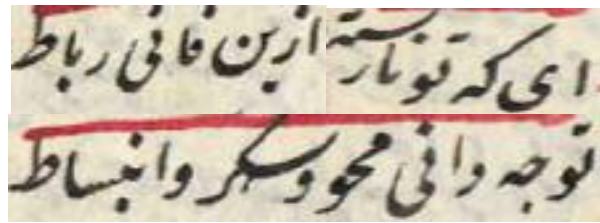 ای که تو نارسته ازین فانی رباط
تو چه دانی محو و سکر و انبساط